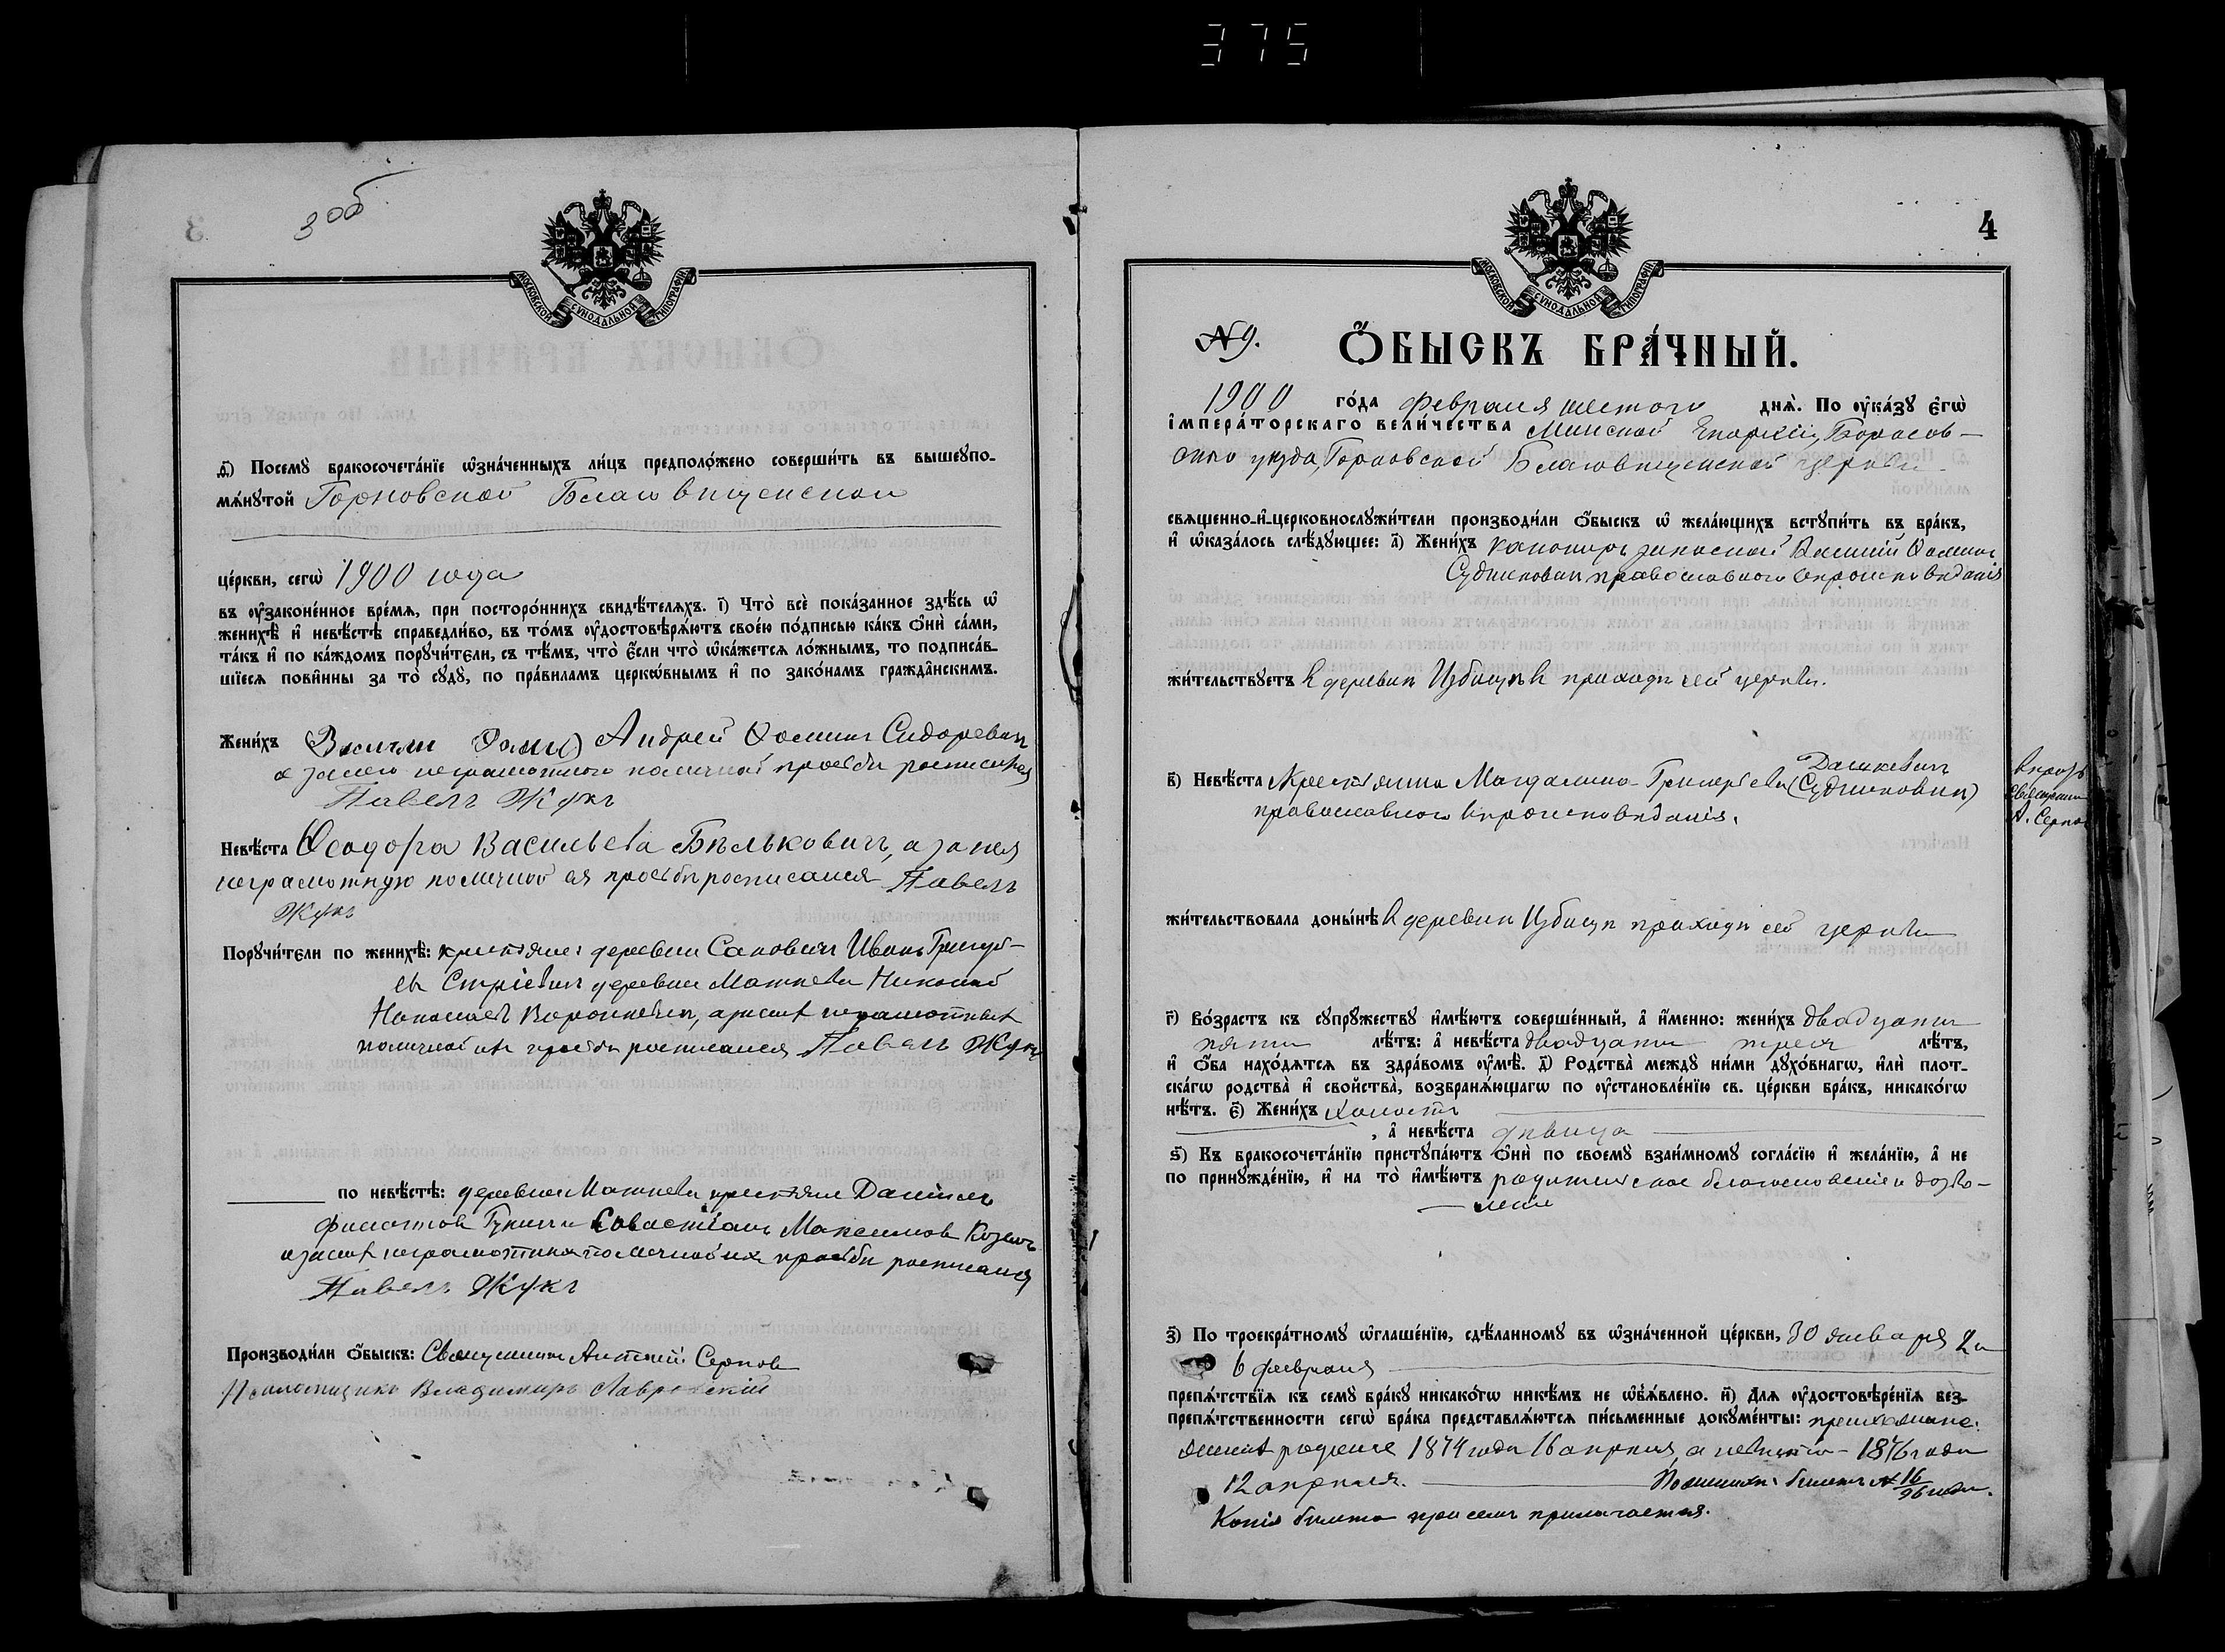 375
3 об
МОСКОВСКОЙ СѴНОДАЛЬНОЙ ТИПОГРАФІИ
д҃і) Посемꙋ бракосочета́нїе ѡ҆зна́ченныхъ ли́цъ предполо́жено соверши́ть въ вышеꙋпо-
мѧ́нꙋтой Горновской Благовѣщенской
це́ркви, сегѡ̀ 1900 года
въ ᲂу҆законе́нное вре́мѧ, при посторо́ннихъ свидѣ́телѧхъ. і҃) Что̀ всѐ пока́занное здѣ́сь ѡ҆
женихѣ̀ и҆ невѣ́стѣ справедли́во, въ то́мъ ᲂу҆достовѣрѧ́ютъ свое́ю по́дписью ка́къ ѻ҆нѝ са́ми,
та́къ и҆ по ка́ждомъ порꙋчи́тели, съ тѣ́мъ, что̀ є҆́сли что̀ ѡ҆ка́жетсѧ ло́жнымъ, то подписа́в-
шїесѧ пови́нны за то̀ сꙋдꙋ̀, по пра́виламъ церкѡ́внымъ и҆ по зако́намъ гражда̑нскимъ.
Жени́хъ (Василій Ѳомы) Андрей Ѳоминъ Сидоревичъ
а за него неграмотнаго по личной просьбѣ росписался
Павелъ Жукъ
Невѣ́ста Ѳеодора Васильева Бѣльковичъ, а за нея
неграмотную по личной ея просьбѣ росписался Павелъ
Жукъ
Порꙋчи́тели по женихѣ̀: крестьяне: деревни Иванъ Григорь-
евъ деревни Матневи Николай
а за нихъ неграмотныхъ
по личной ихъ просьбѣ росписался Павелъ Жукъ
по невѣ́стѣ: деревни Матневи крестьяне Даніилъ
Филатовъ и Севастіанъ Максимовъ Козелъ
а за нихъ неграмотныхъ по личной ихъ просьбѣ росписался
Павелъ Жукъ
Производи́ли ѻ҆́быскъ: Священникъ Антоній Серновъ
Псаломщикъ Владимиръ Лавровскій
4
МОСКОВСКОЙ СѴНОДАЛЬНОЙ ТИПОГРАФІИ
№ 9.
Ѻ҆́БЫСКЪ БРА́ЧНЫЙ.
1900 го́да февраля шестого днѧ̀. По ᲂу҆ка́зꙋ є҆гѡ̀
і҆мпера́торскаго вели́чества Минской Епархіи, Борисов-
скаго уѣзда, Горновской Благовѣщенской церкви
свѧщенно-и҆-церковнослꙋжи́тели производи́ли ѻ҆́быскъ ѡ҆ жела́ющихъ встꙋпи́ть въ бра́къ,
и҆ ѡ҆каза́лось слѣ́дꙋющее: а҃) Жени́хъ канониръ запасной Василій Ѳоминъ
Судниковичъ православнаго вѣроисповѣданія
жи́тельствꙋетъ въ деревнѣ Избищѣ въ приходѣ сей церкви.
в҃) Невѣ́ста Крестьянка Магдалина Григорьева Дашкевичъ (Судниковичъ) вѣрно
православнаго вѣроисповѣданія. священникъ
А. Серновъ
жи́тельствовала доны́нѣ въ деревнѣ Избищѣ приходѣ сей церкви
г҃) Во́зрастъ къ сꙋпрꙋ́жествꙋ и҆мѣ́ютъ соверше́нный, а҆ и҆́менно: жени́хъ двадцати
пяти лѣ́тъ: а҆ невѣ́ста двадцати трехъ лѣ́тъ,
и҆ ѻ҆́ба нахо́дѧтсѧ въ здра́вомъ ᲂу҆мѣ̀. д҃) Родства̀ междꙋ ни́ми дꙋхо́внагѡ, и҆лѝ плот-
ска́гѡ родства̀ и҆ свойства̀, возбранѧ́ющагѡ по ᲂу҆становле́нїю св. це́ркви бра́къ, никако́гѡ
нѣ́тъ. є҃) Жени́хъ холостъ
, а҆ невѣ́ста дѣвица
ѕ҃) Къ бракосочета́нїю пристꙋпа́ютъ ѻ҆нѝ по своемꙋ̀ взаи́мномꙋ согла́сїю и҆ жела́нїю, а҆ не
по принꙋжде́нїю, и҆ на то̀ и҆мѣ́ютъ родительское благословеніе и дозво-
леніе
з҃) По троекра́тномꙋ ѡ҆глаше́нїю, сдѣ́ланномꙋ въ ѡ҆зна́ченной це́ркви, 30 января 2 и
6 февраля
препѧ́тствїѧ къ семꙋ̀ бра́кꙋ никако́гѡ никѣ́мъ не ѡ҆б̾ѧ́влено. и҃) Длѧ ᲂу҆достовѣре́нїѧ без-
препѧ́тственности сегѡ̀ бра́ка представлѧ́ютсѧ пи́сьменные докꙋме́нты: прихожане:
женихъ рожденіе 1874 года 16 апрѣля, а невѣста - 1876 года
12 апрѣля. билетъ № 16/96 года.
Копія билета при семъ прилагается.